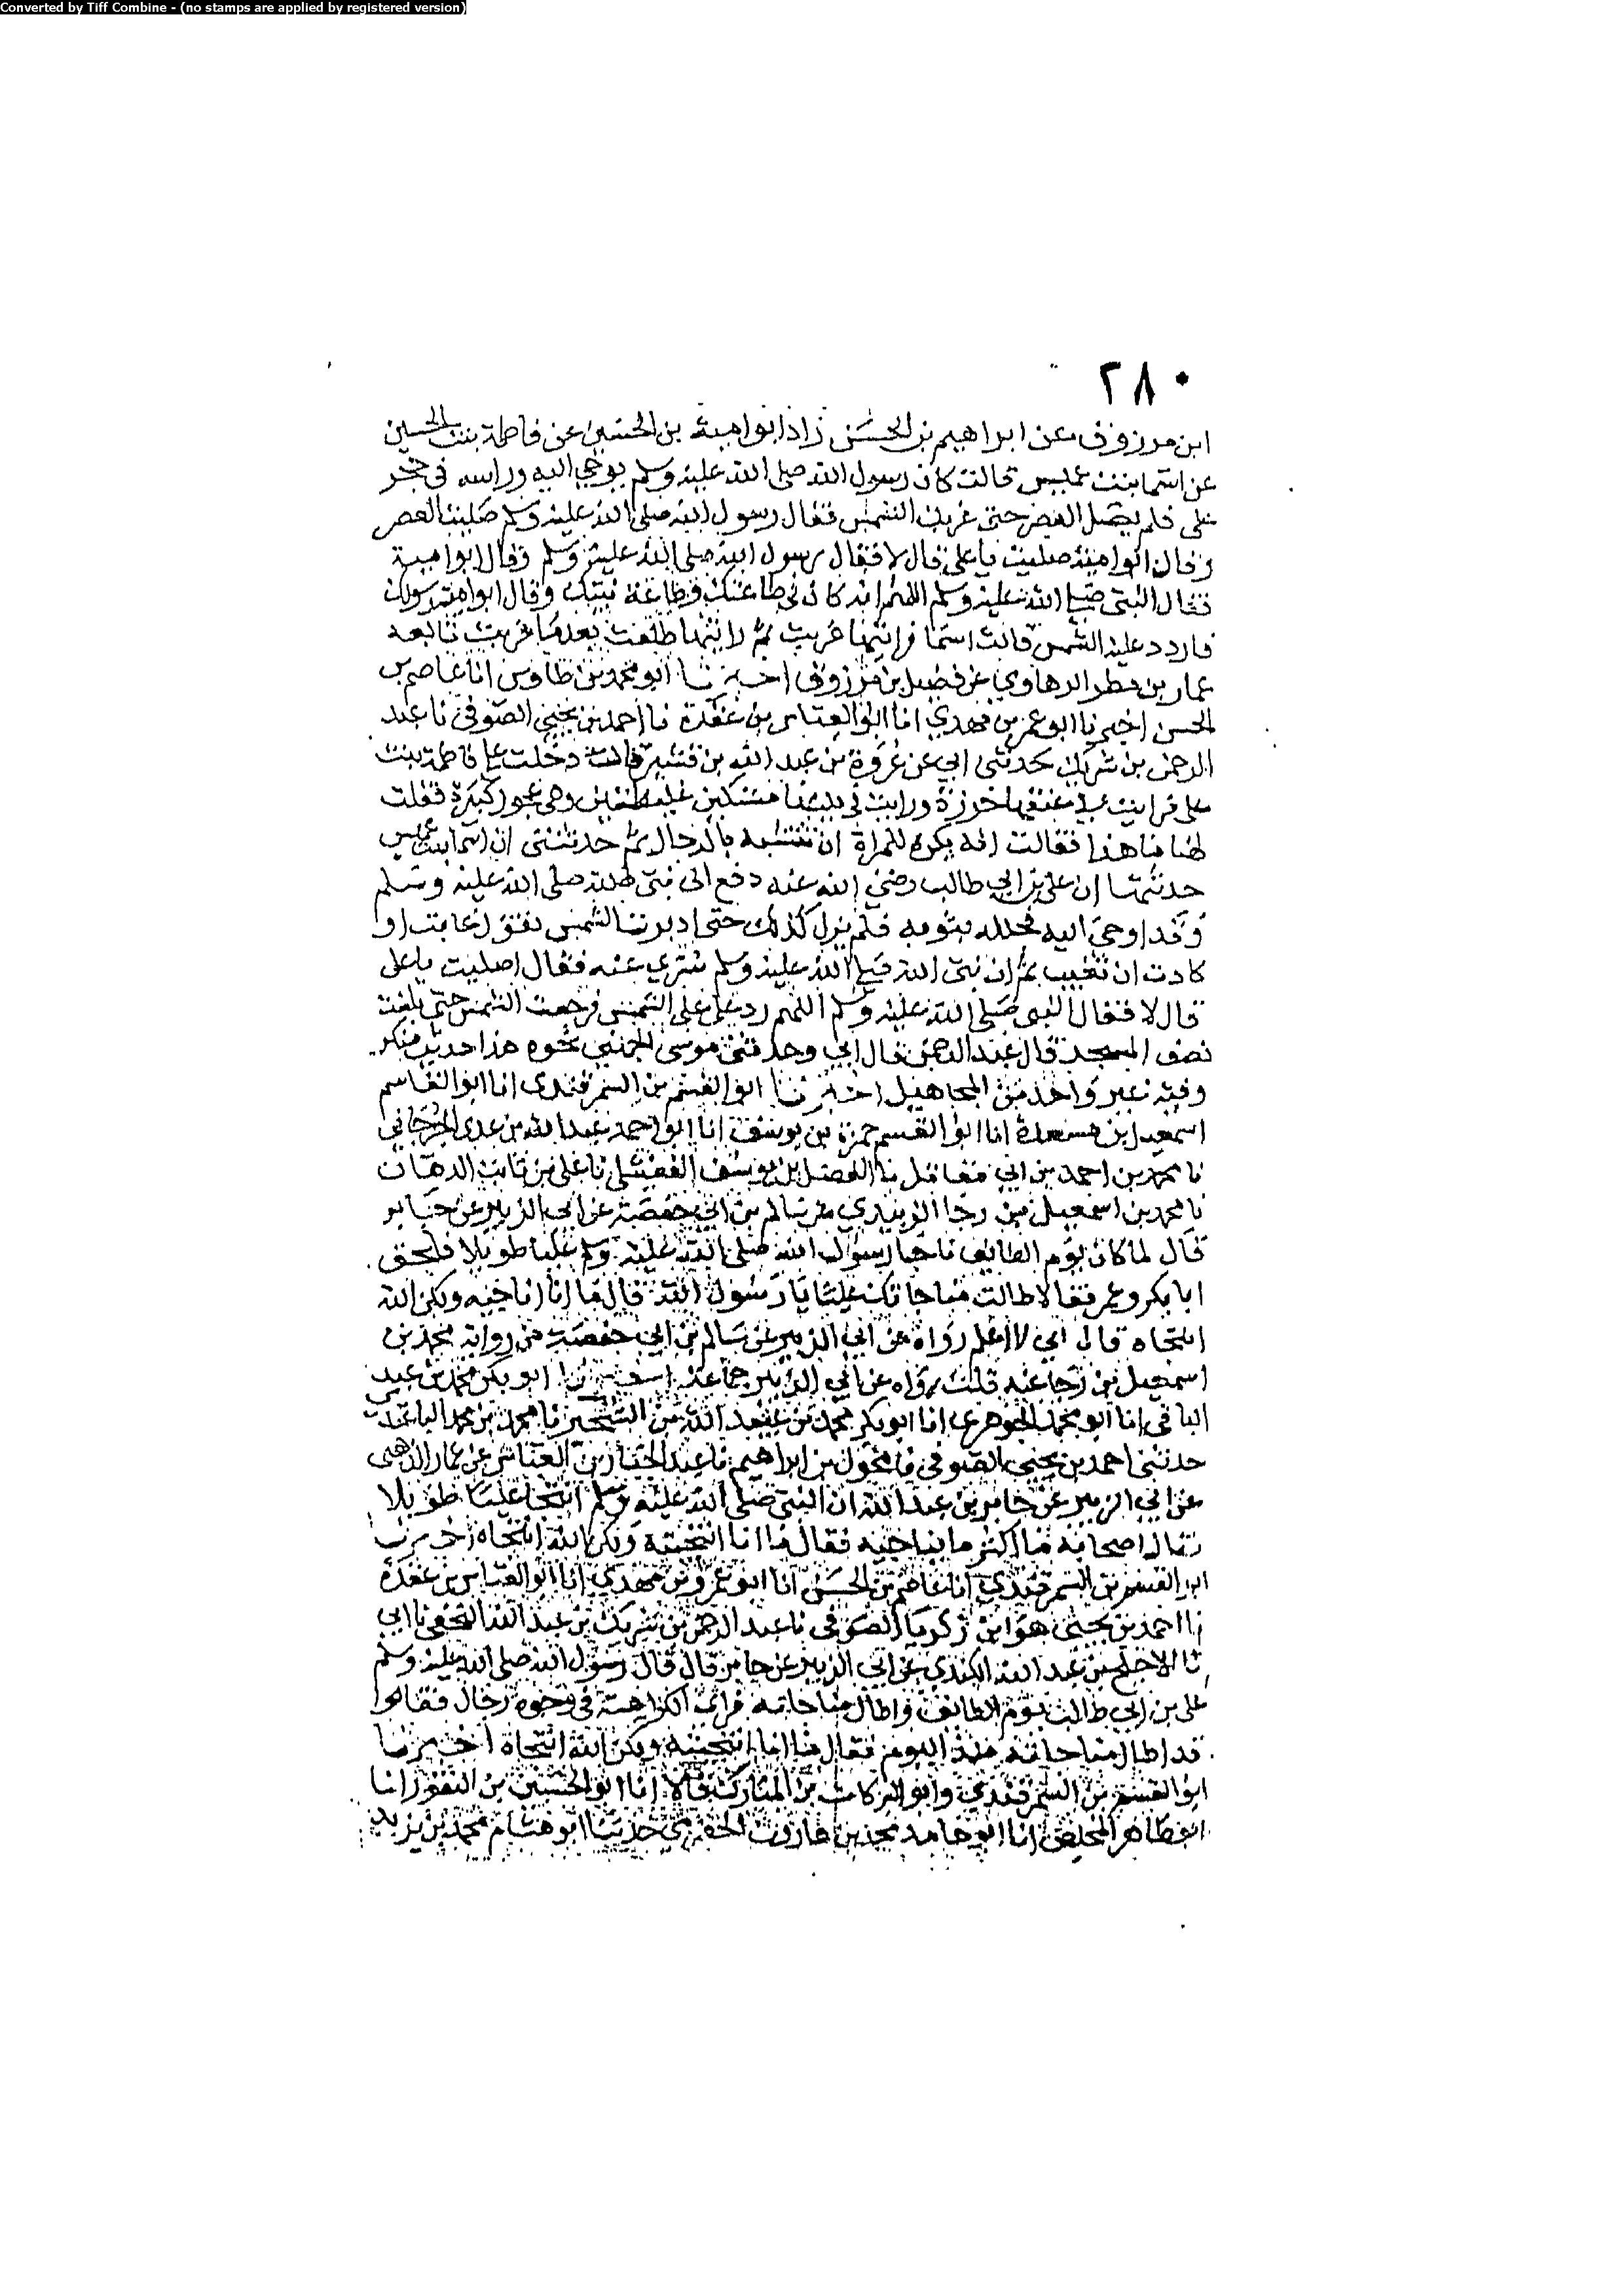 Converted by Tiff Combine - (no stamps are applied by registered version)
٢٨٠
ابن مرزوق عن ابراهيم بن الحسن زاد ابو امية بن الحسين عن فاطمة بنت الحسين
عن اسما بنت عميس قالت كان رسول الله صلى الله عليه وسلم يوحي اليه وراسه في حجر
علي فلم يصل العصر حتى غربت الشمس فقال رسول الله صلى الله عليه وسلم صليت العصر
وقال ابو امية صليت يا علي قال لا فقال رسول الله صلى الله عليه وسلم وقال ابو امية
فقال النبي صلى الله عليه وسلم اللهم انه كان في طاعتك وطاعة نبيك وقال ابو امية رسولك
فاردد عليه الشمس قالت اسما فرايتها غربت ثم رايتها طلعت بعدما غربت تابعه
عمار بن مطر الرهاوي عن فضيل بن مرزوق اخبرنا ابو محمد بن طاوس انا عاصم بن
الحسن اخبرنا ابو عمر بن مهدي انا ابو العباس بن عقدة نا احمد بن يحيى الصوفي نا عبد
الرحمن بن شريك حدثني ابي عن عروة بن عبد الله بن قشير قالت دخلت على فاطمة بنت
علي فرايت في عنقها خرزة ورايت في يديها مسكتين غليظتين وهي عجوز كبيرة فقلت
لها ما هذا فقالت انه يكره للمراة ان تتشبه بالرجال ثم حدثتني ان اسما بنت عميس
حدثتها ان علي بن ابي طالب رضي الله عنه دفع الى نبي الله صلى الله عليه وسلم
وقد اوحي اليه فجلله بثوبه فلم يزل كذلك حتى ادبرت الشمس تقول غابت او
كادت ان تغيب ثم ان نبي الله صلى الله عليه وسلم سري عنه فقال اصليت يا علي
قال لا فقال النبي صلى الله عليه وسلم اللهم رد على علي الشمس فرجعت الشمس حتى بلغت
نصف المسجد قال عبد الرحمن قال ابي وحدثني موسى الجهني نحوه هذا حديث منكر
وفيه غير واحد من المجاهيل اخبرنا ابو القسم بن السمرقندي انا ابو القاسم
اسمعيل بن مسعدة انا ابو القسم حمزة بن يوسف انا ابو احمد عبد الله بن عدي الجرجاني
نا محمد بن احمد بن ابي مقاتل نا الفضل بن يوسف القصباني نا علي بن ثابت الدهان
نا محمد بن اسمعيل بن رجا الزبيدي عن سالم بن ابي حفصة عن ابي الزبير عن جابر
قال لما كان يوم الطائف ناجا رسول الله صلى الله عليه وسلم عليا طويلا فلحق
ابا بكر وعمر فقالا طالت مناجاتك عليا يا رسول الله قال ما انا اناجيه ولكن الله
انتجاه قال ابي لا اعلم رواه عن ابي الزبير عن سالم بن ابي حفصة من رواية محمد بن
اسمعيل بن رجا عنه قلت رواه عن ابي الزبير جماعة اخبرنا ابو بكر محمد بن عبد
الباقي انا ابو محمد الجوهري انا ابو بكر محمد بن عبيد الله بن الشخير نا محمد بن محمد الباغندي
حدثني احمد بن يحيى الصوفي نا مخول بن ابراهيم نا عبد الجبار بن العباس عن عمار الدهني
عن ابي الزبير عن جابر بن عبد الله ان النبي صلى الله عليه وسلم انتجا عليا طويلا
فقال اصحابه ما اكثر ما يناجيه فقال ما انا انتجيته ولكن الله انتجاه اخبرنا
ابو القسم بن السمرقندي انا عاصم بن الحسن انا ابو عمر بن مهدي انا ابو العباس بن عقدة
نا احمد بن يحيى هو ابن زكريا الصوفي نا عبد الرحمن بن شريك بن عبد الله النخعي نا ابي
نا الاجلح بن عبد الله الكندي عن ابي الزبير عن جابر قال قال رسول الله صلى الله عليه وسلم
علي بن ابي طالب يوم الطائف واطال مناجاته فراى الكراهية في وجوه رجال فقالوا
قد اطال مناجاته منذ اليوم فقال ما انا انتجيته ولكن الله انتجاه اخبرنا
ابو القسم بن السمرقندي وابو البركات بن المبارك قالا انا ابو الحسين بن النقور انا
ابو طاهر المخلص انا ابو حامد محمد بن هارون الحضرمي حدثنا ابو هشام محمد بن يزيد